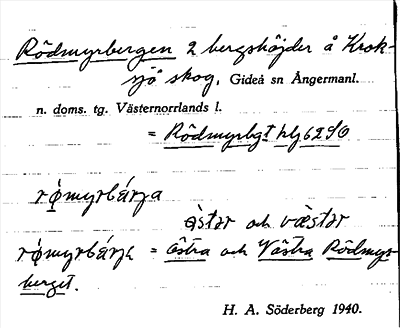 Rödmyrbergen 2 bergshöjder å Krok-
sjö skog, Gideå sn Ångermanl.
n. doms. tg. Västernorrlands l.
= Rödmyrbgt
rǿmyrbárja
östər och væstər
rǿmyrbárjə = Östra och Västra Rödmyr-
berget.
H. A. Söderberg 1940.